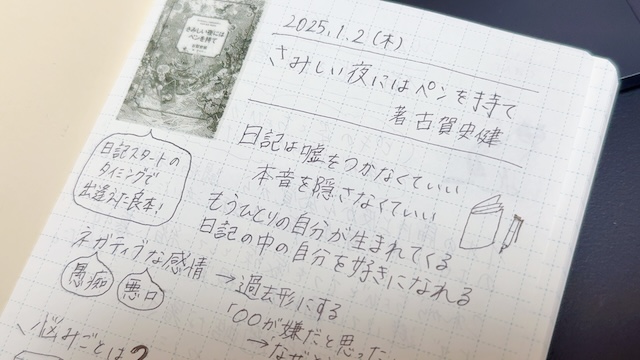 さみしい夜には
ペンを持て
2025.1.2(木)
さみしい夜にはペンを持て
著古賀史健
日記スタートの
タイミングで
出逢えた良本!
日記は嘘をつかなくていい
本音を隠さなくていい
もうひとりの自分が生まれてくる
日記の中の自分を好きになれる
ネガティブな感情
愚痴
悪口
→過去形にする
「〇〇が嫌だと思った
悩みごとは?